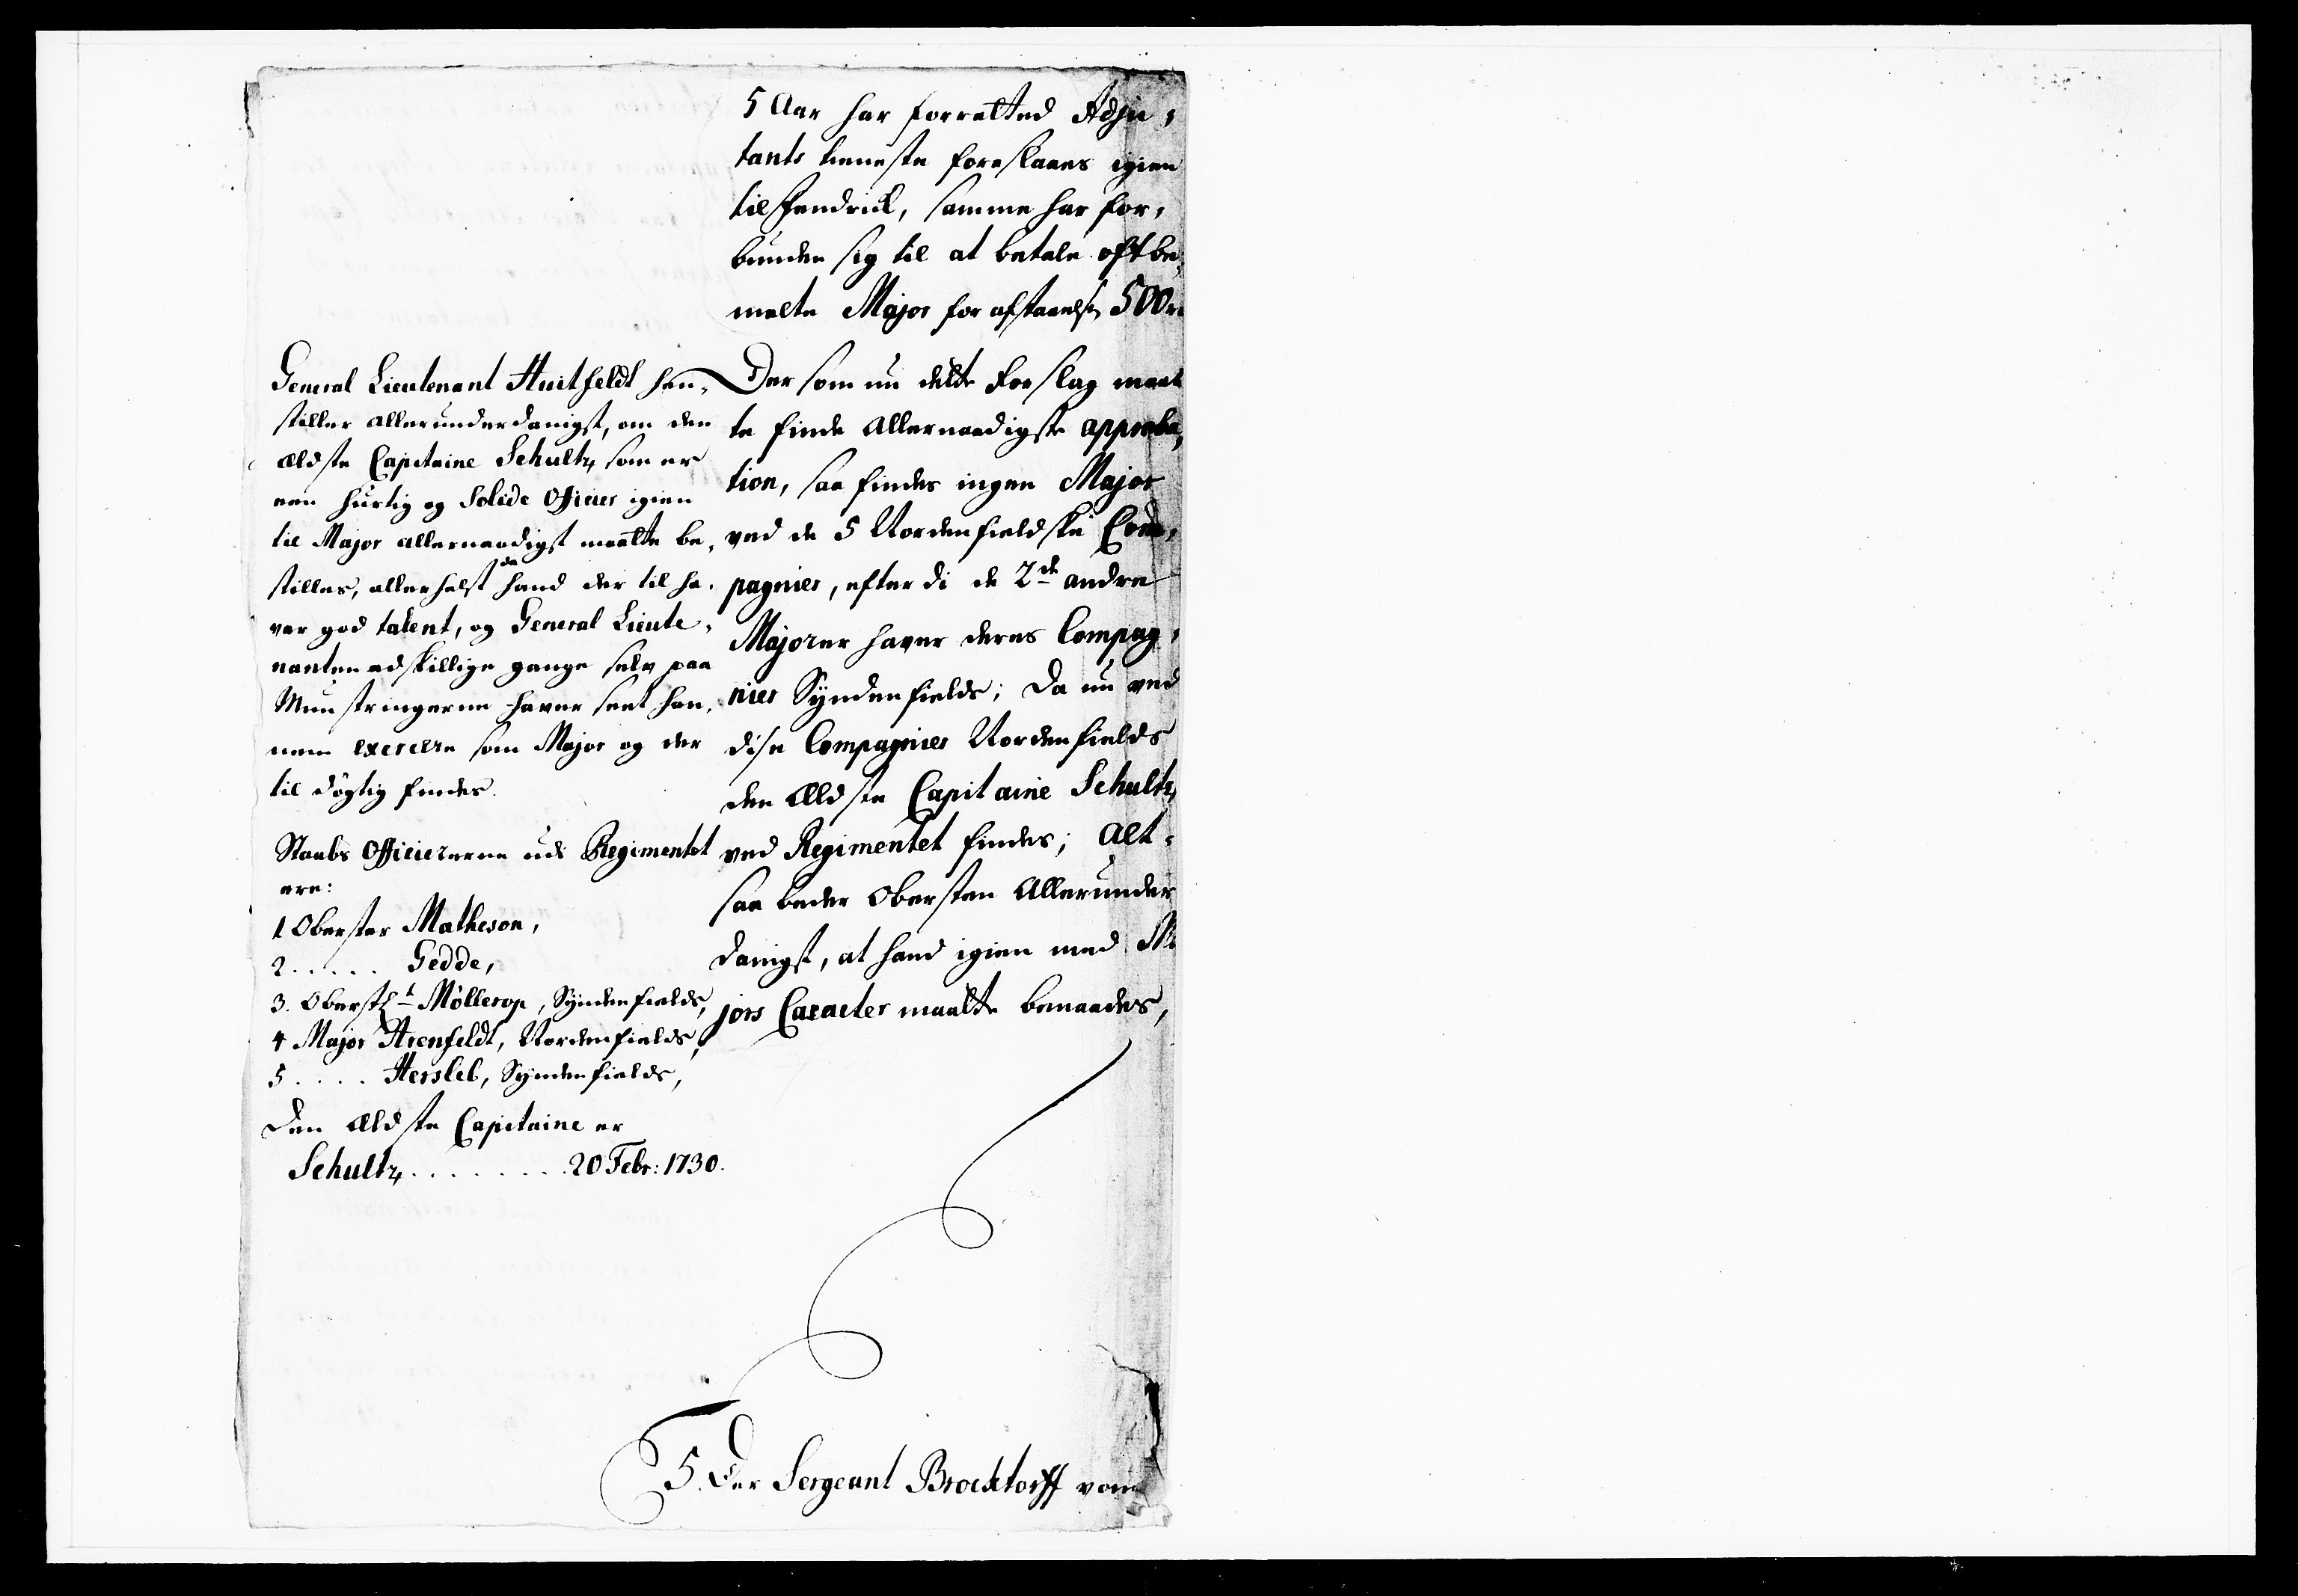 5 Aar har forretted Adju-
tants tieneste foreslaaes igien
til Fendrick, samme har for-
bunden sig til at betale oftbe-
melte Major for afstaaelse 500 r
Der som nu dette Forslag maat
te finde Allernaadigste approba-
tion, saa findes ingen Major
ved de 5 Nordenfieldske Com-
pagnier, efterdi de 2de andre
Majorer haver deres Compag-
nier Syndenfields; Da nu ved
dise Compagnier Nordenfields
den Ældste Capitaine Schultz
ved Regimentet findes; Alt-
saa beder Obersten Allerunder
danigst, at hand igien med Ma
jors Caracter maatte benaades,
General Lieutenant Huitfeldt hen-
stiller allerunderdanigst, om den
ældste Capitaine Schultz som er
een hurtig og Solide Officier igien
til Major allernaadigst maatte be-
stilles, allerhelst da hand der til ha-
ver god talent, og General Lieute-
nanten adskillige gange selv paa
Mynstringerne haver seet han-
nem exercere som Major og der
til dögtig findes.
Staabs Officiererne udi Regimentet
ere:
1 Oberster Matheson,
2 . . . . . Gedde,
3. Oberstlt Möllerop, Syndenfields,
4 Major Arenfeldt, Nordenfields,
5 . . . . Hersleb, Syndenfields,
Den Ældste Capitaine er
Schultz . . . . . . . 20 Febr: 1730.
5. Der Sergeant Brocktorff vom